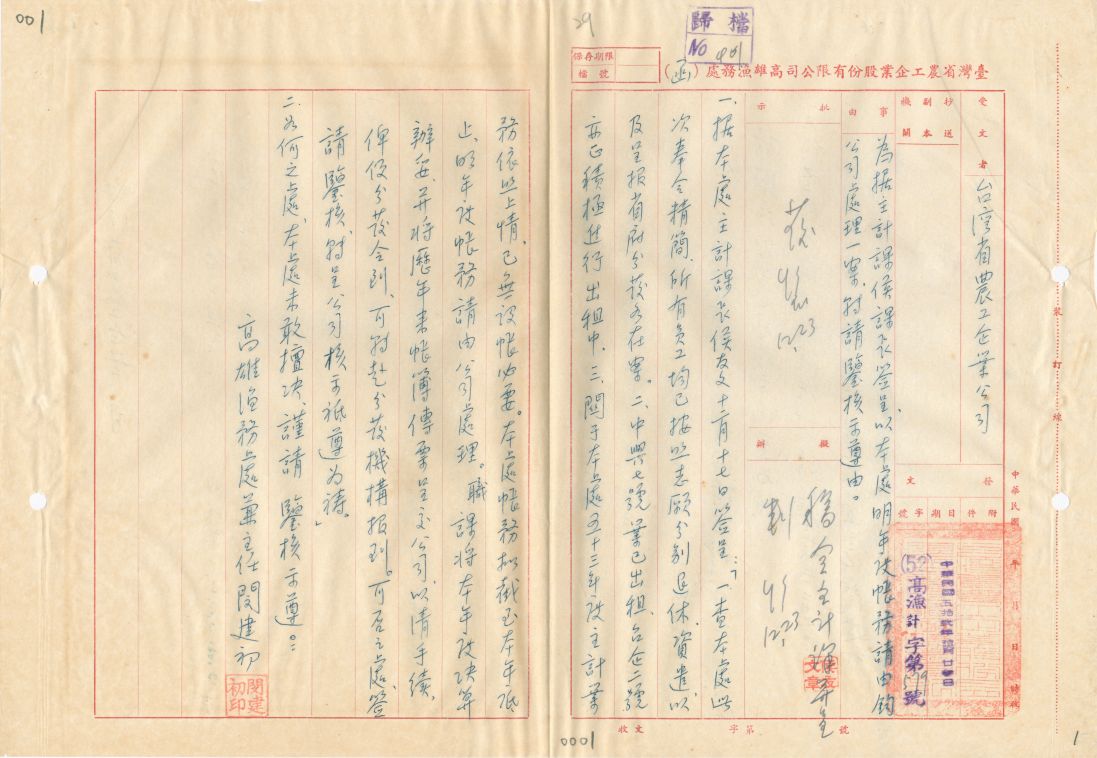 001
29
歸檔
NO
保存期限
檔號
臺灣省農工企業股份有限公司高雄漁務處（函）
受文者
台湾省農工企業公司
抄送
副本
機關
事由
為据主計課侯課長簽呈，以本處明年度帳務請由鈞
公司處理一案，特請鑒核示遵由。
批示
12.23
擬辦
12.23
發文
附件
日期
字號
中華民國 年 月 日 時發
中華民國五拾弍年
(52)高漁計字第599號
一、据本處主計課長侯友文十二月十七日簽呈：「一、查本處此
次奉令精簡，所有員工均已按照志願分別退休、資遣，以
及呈报省府分發各在案。二、中興七號業已出租，台企二號
亦正積極進行出租中。三、関于本處五十三年度主計業
務依照上情，已無設帳必要。本處帳務拟截至本年底
止，明年度帳務請由公司處理。職課將本年度決算
辦妥，并將歷年來帳簿傳票呈交公司，以清手續，
俾便分發令到，可特赴分發機構报到。可否之處，簽
請鑒核，特呈公司核示祇遵為禱。」
二、如何之處，本處未敢擅決，謹請 鑒核示遵。
高雄漁務處兼主任閔建初
閔建初印
收文 字第 號
裝訂線
0001
1